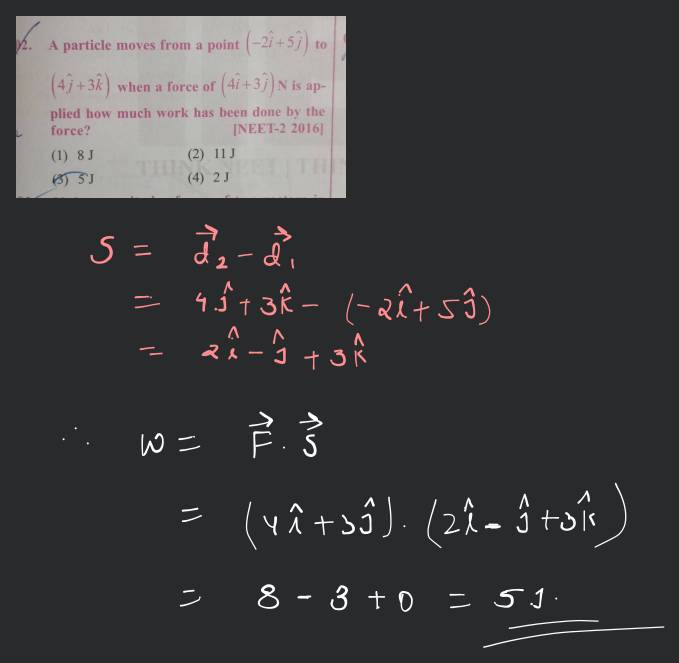 2. A particle moves from a point (-2î+5ĵ) to
(4ĵ+3k̂) when a force of (4î+3ĵ) N is ap-
plied how much work has been done by the
force? [NEET-2 2016]
(1) 8 J (2) 11 J
(3) 5 J (4) 2 J
THINK NEET | THIN
S = d⃗₂ - d⃗₁
= 4ĵ + 3k̂ - (-2î + 5ĵ)
= 2î - ĵ + 3k̂
∴ W = F⃗ . S⃗
= (4î + 3ĵ) . (2î - ĵ + 3k̂)
= 8 - 3 + 0 = 5 J.